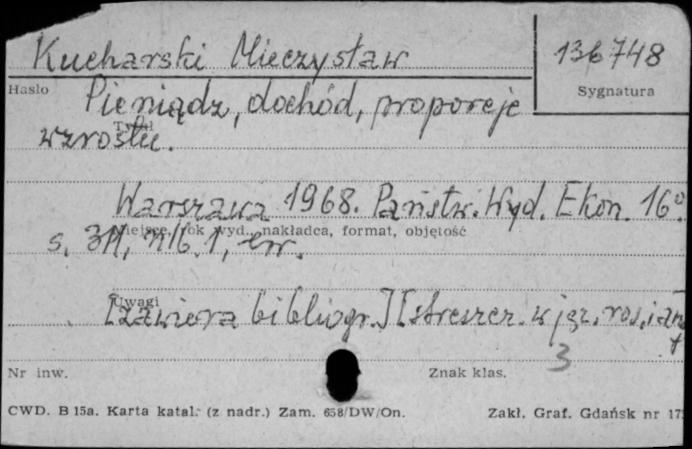 Kucharski Mieczysław
136748
Hasło
Sygnatura
Pieniądz, dochód, proporcje
Tytuł
wzrostu.
Warszawa 1968. Państw. Wyd. Ekon. 16°
Miejsce, rok wyd., nakładca, format, objętość
s. nlb. 1, err.
Uwagi
[zawiera bibliogr.] [streszcz. w jęz. ros. i
3
Nr inw.
Znak klas.
CWD. B 15a. Karta katal. (z nadr.) Zam. 658/DW/On.
Zakł. Graf. Gdańsk nr 17